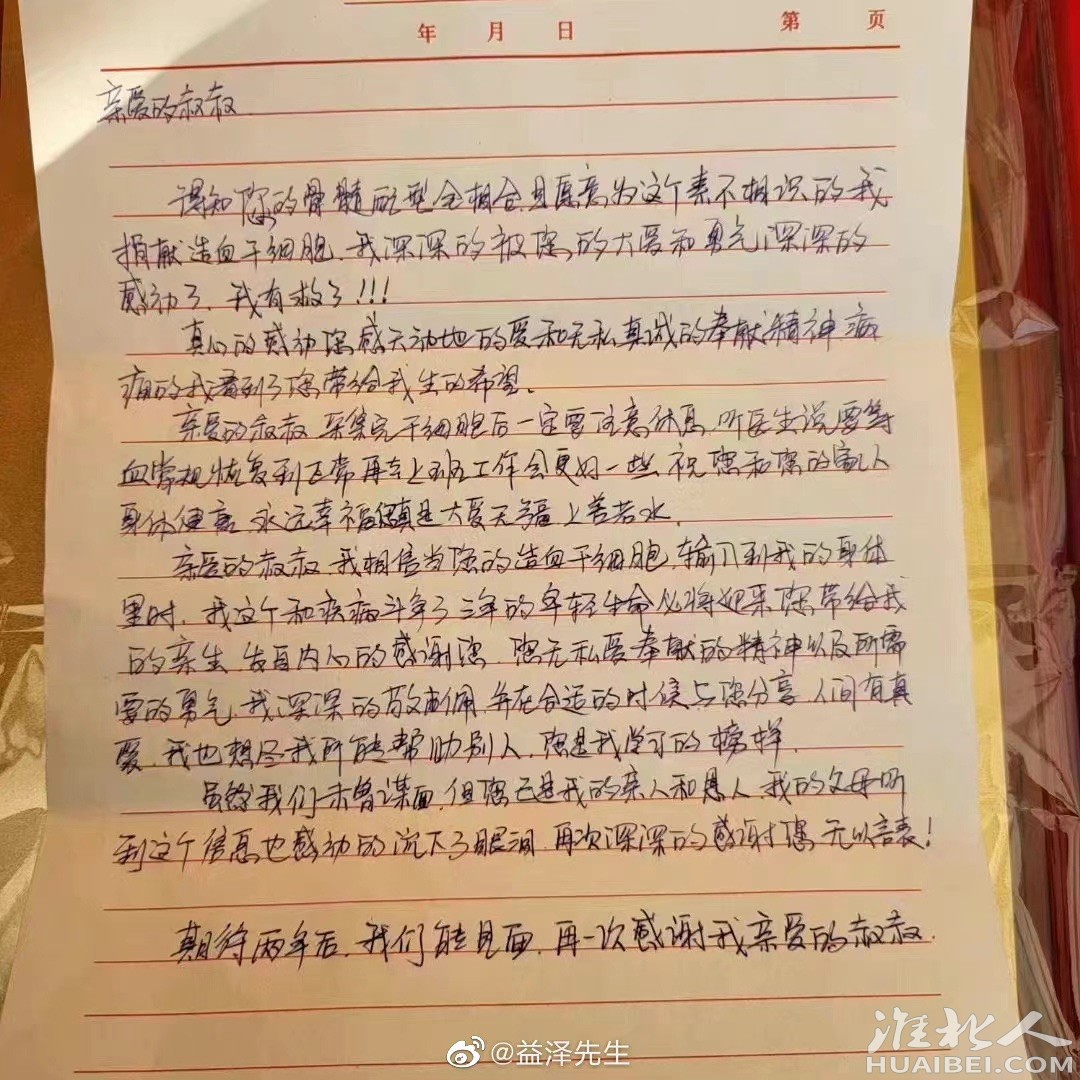 年 月 日 第 页
亲爱的叔叔
得知您的骨髓配型全相合且愿意为这个素不相识的我
捐献造血干细胞.我深深的被您的大爱和勇气深深的
感动了.我有救了!!!
真心的感动您感天动地的爱和无私真诚的奉献精神.病
痛的我看到了您带给我生的希望。
亲爱的叔叔 采集完干细胞后一定要注意休息.听医生说要等
血常规恢复到正常再去上班工作会更好一些.祝您和您的家人
身体健康 永远幸福 真是大爱无疆 上善若水.
亲爱的叔叔.我相信当您的造血干细胞.输入到我的身体
里时.我这个和疾病斗争了三年的年轻生命必将迎来您带给我
的亲生.发自内心的感谢您.您无私爱奉献的精神以及所需
要的勇气.我深深的敬佩.并在合适的时候与您分享.人间有真
爱.我也想尽我所能帮助别人.您是我学习的榜样.
虽然我们未曾谋面.但您已是我的亲人和恩人.我的父母听
到这个信息也感动的沉下了眼泪.再次深深的感谢您 无以言表!
期待两年后.我们能见面.再一次感谢我亲爱的叔叔.
@益泽先生
淮北人
HUAIBEI.COM